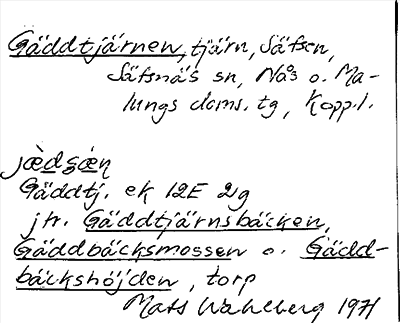 Gäddtjärnen, tjärn, Säfsen,
Säfsnäs sn, Nås o. Ma-
lungs doms. tg, Kopp.l.
jæ̀dʂæ̀ṇ
Gäddtj. ek 12E 2g
jfr. Gäddtjärnsbäcken,
Gäddbäcksmossen o. Gädd-
bäckshöjden, torp
Mats Wahlberg 1971